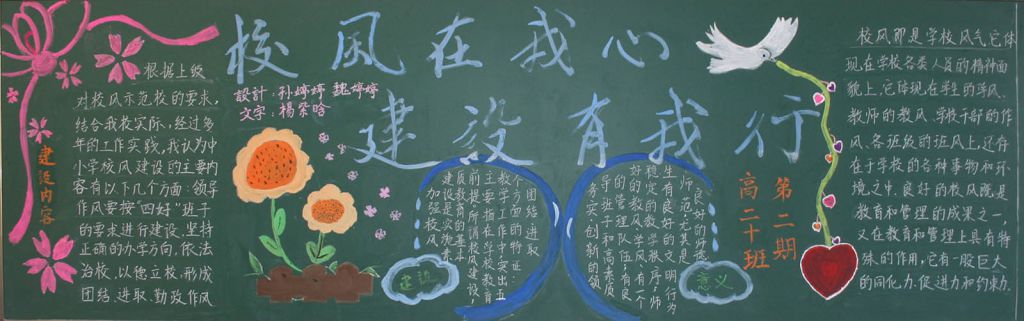 校风在我心
建设有我行
設計：孙婷婷 魏婷婷
文字：楊荣哈
建设内容
根据上级
对校风示范校的要求，
结合我校实际，经过多
年的工作实践，我认为中
小学校风建设的主要内
容有以下几个方面：领导
作风要按“四好”班子
的要求进行建设，坚持
正确的办学方向，依法
治校，以德立校，形成
团结、进取、勤政作风
建设
加强校风
建设是实施素
质教育的基本
前提，所谓校风建设，
主要指在学校教育
教学工作中突出五
个方面的特征：
团结进取
意义
第二期
高二十班
良好的师德
师范，尤其是
生有良好的文明行为
稳定的教学秩序；师
好的教风、学风；有一个
的管理队伍；有良
守班子和高素质
务实、创新的领
校风即是学校风气它体
现在学校各类人员的精神面
貌上，它体现在学生的学风、
教师的教风、学校干部的作
风、各班级的班风上，还存
在于学校的各种事物和环
境之中.良好的校风既是
教育和管理的成果之一，
又在教育和管理上具有特
殊的作用，它有一股巨大
的同化力、促进力和约束力.